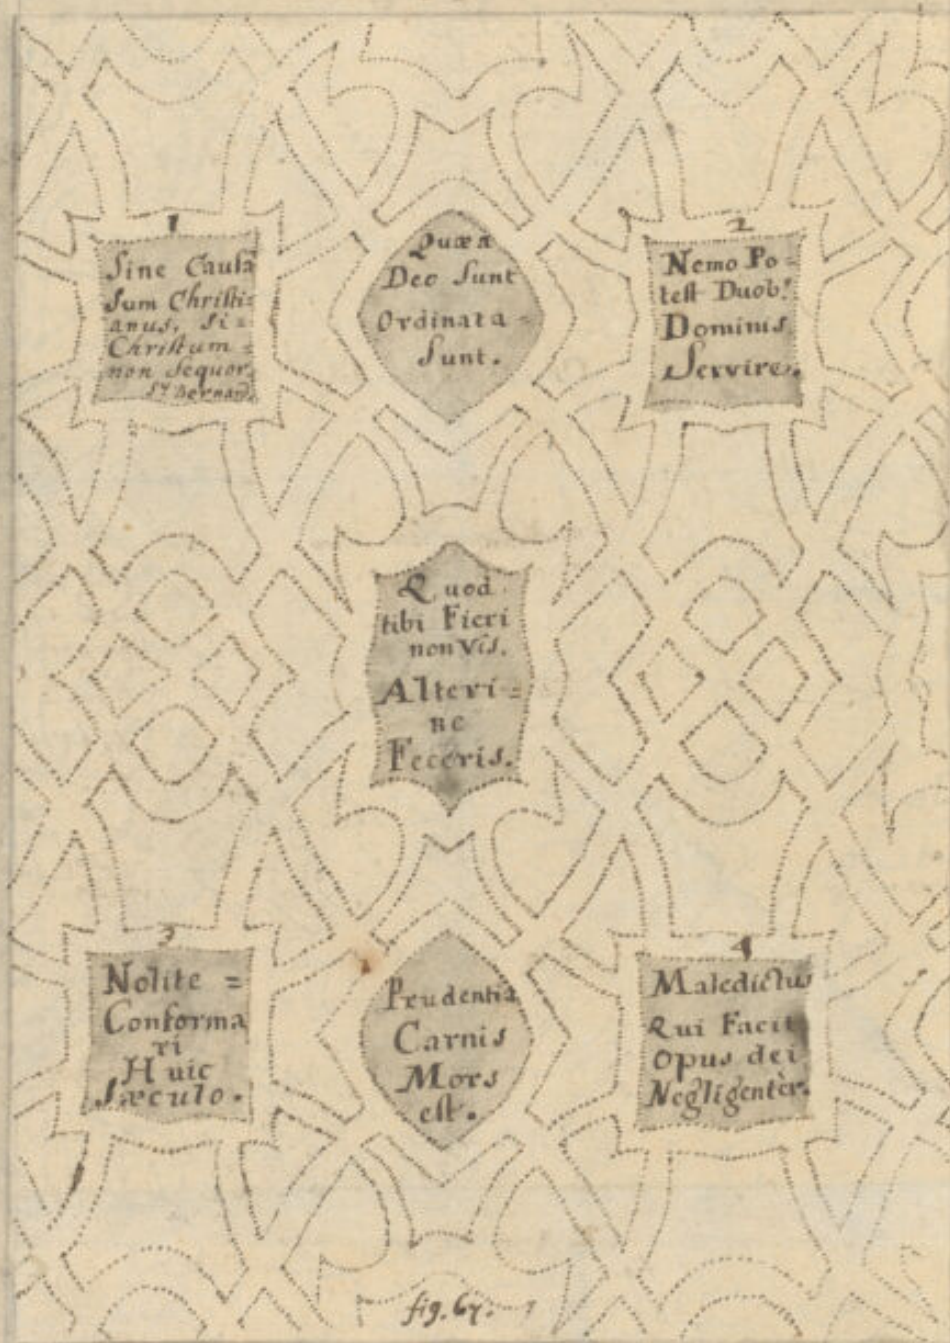 1
Sine Causa
Sum Christi=
anus, si=
Christum=
non sequor.
St. Bernard.
Quæ a
Deo Sunt
Ordinata=
Sunt.
2
Nemo Po=
test Duob9
Dominis
Servire.
Quod
tibi Fieri
non Vis.
Alteri=
ne
Feceris.
3
Nolite =
Conforma
ri
Huic
Sæculo.
Prudentia
Carnis
Mors
est.
4
Maledictus
Qui Facit
Opus dei
Negligentèr.
fig. 67.